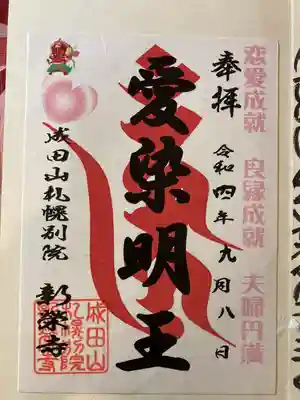 恋愛成就 良縁成就 夫婦円満
奉拝 令和四年九月八日
愛染明王
成田山札幌別院 新榮寺
成田山
札幌別院
新栄寺